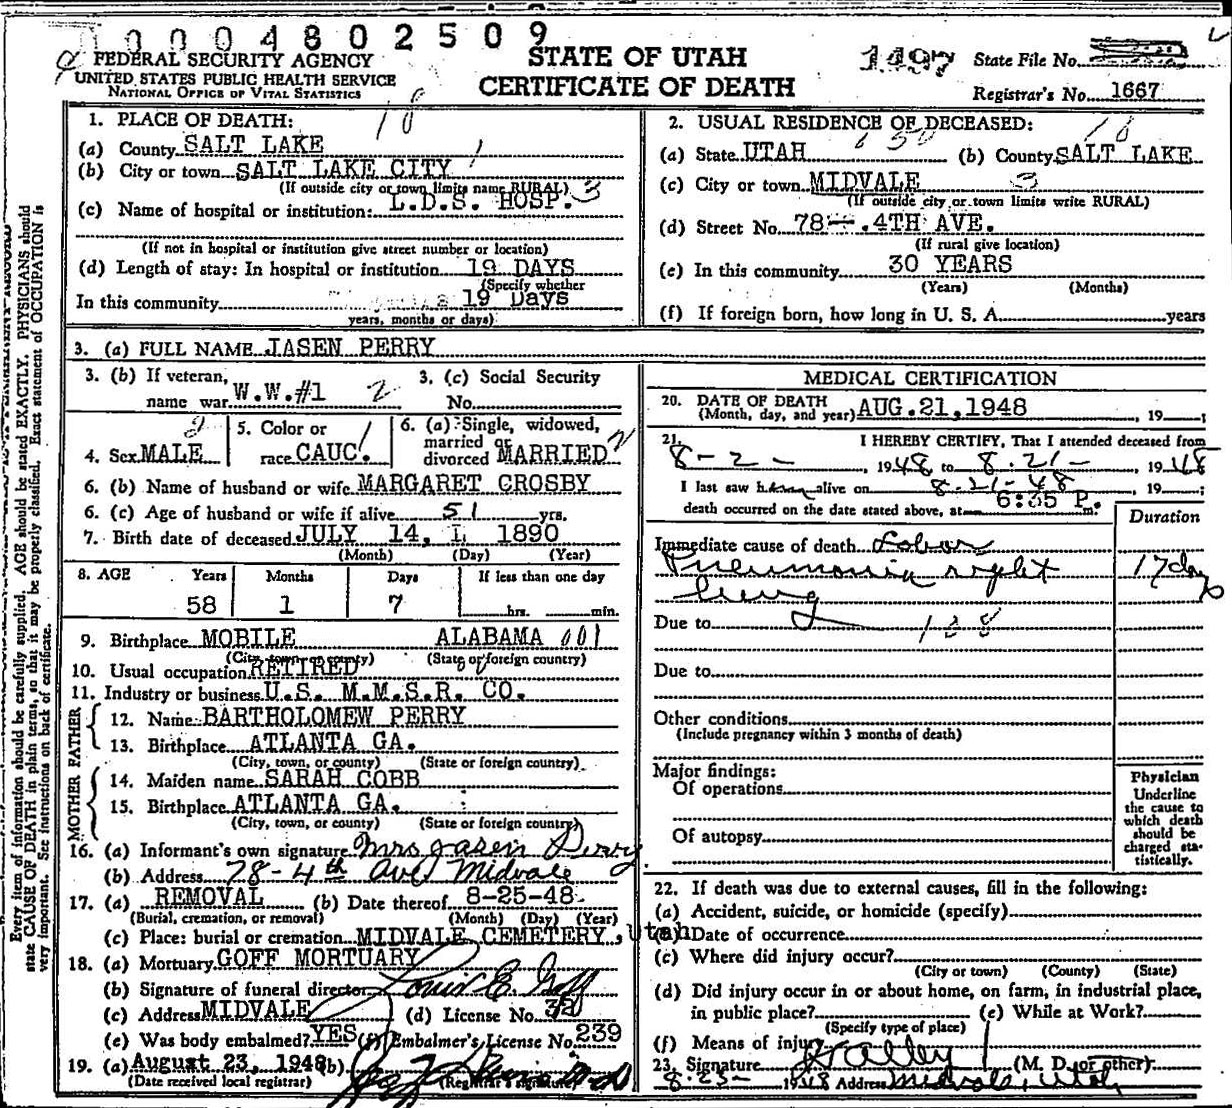 0004802509
FEDERAL SECURITY AGENCY
UNITED STATES PUBLIC HEALTH SERVICE
NATIONAL OFFICE OF VITAL STATISTICS
STATE OF UTAH
CERTIFICATE OF DEATH
1497
State File No.
Registrar's No. 1667
1. PLACE OF DEATH: 18
(a) County SALT LAKE
(b) City or town SALT LAKE CITY 1
(If outside city or town limits name RURAL) 3
(c) Name of hospital or institution: L.D.S. HOSP.
(If not in hospital or institution give street number or location)
(d) Length of stay: In hospital or institution 19 DAYS
(Specify whether
In this community 19 Days
years, months or days)
2. USUAL RESIDENCE OF DECEASED:
(a) State UTAH (b) County SALT LAKE
(c) City or town MIDVALE 3
(If outside city or town limits write RURAL)
(d) Street No. 78- 4TH AVE.
(If rural give location)
(e) In this community 30 YEARS
(Years) (Months)
(f) If foreign born, how long in U. S. A. years
3. (a) FULL NAME JASEN PERRY
3. (b) If veteran, name war W.W.#1 2
3. (c) Social Security No.
4. Sex MALE 2
5. Color or race CAUC. 1
6. (a) Single, widowed, married or divorced MARRIED 2
6. (b) Name of husband or wife MARGARET CROSBY
6. (c) Age of husband or wife if alive 51 yrs.
7. Birth date of deceased JULY 14, 1890
(Month) (Day) (Year)
8. AGE Years Months Days If less than one day
58 1 7 hrs. min.
9. Birthplace MOBILE ALABAMA 001
(City, town or county) (State or foreign country)
10. Usual occupation RETIRED
11. Industry or business U.S. M.M.S.R. CO.
FATHER
12. Name BARTHOLOMEW PERRY
13. Birthplace ATLANTA GA.
(City, town, or county) (State or foreign country)
MOTHER
14. Maiden name SARAH COBB
15. Birthplace ATLANTA GA.
(City, town, or county) (State or foreign country)
16. (a) Informant's own signature Mrs Jasen Perry
(b) Address 78-4th Ave Midvale
17. (a) REMOVAL (b) Date thereof 8-25-48
(Burial, cremation, or removal) (Month) (Day) (Year)
(c) Place: burial or cremation MIDVALE CEMETERY, Utah
18. (a) Mortuary GOFF MORTUARY
(b) Signature of funeral director Louis E. Goff
(c) Address MIDVALE (d) License No. 32
(e) Was body embalmed? YES (f) Embalmer's License No. 239
19. (a) August 23, 1948 (b)
(Date received local registrar) (Registrar's signature)
MEDICAL CERTIFICATION
20. DATE OF DEATH
(Month, day, and year) AUG.21,1948 , 19
21. I HEREBY CERTIFY, That I attended deceased from
8-2- , 1948 to 8.21- , 1948
I last saw him alive on 8-21-48 , 19 ;
death occurred on the date stated above, at 6:35 P. m.
Duration
Immediate cause of death Lobar
Pneumonia right 17 days
lung
Due to 108
Due to
Other conditions
(Include pregnancy within 3 months of death)
Major findings:
Of operations
Of autopsy
Physician
Underline
the cause to
which death
should be
charged sta-
tistically.
22. If death was due to external causes, fill in the following:
(a) Accident, suicide, or homicide (specify)
(b) Date of occurrence
(c) Where did injury occur?
(City or town) (County) (State)
(d) Did injury occur in or about home, on farm, in industrial place,
in public place? (e) While at Work?
(Specify type of place)
(f) Means of injury
23. Signature (M. D. or other)
8-23- 1948 Address Midvale, Utah
Every item of information should be carefully supplied. AGE should be stated EXACTLY. PHYSICIANS should
state CAUSE OF DEATH in plain terms, so that it may be properly classified. Exact statement of OCCUPATION is
very important. See instructions on back of certificate.